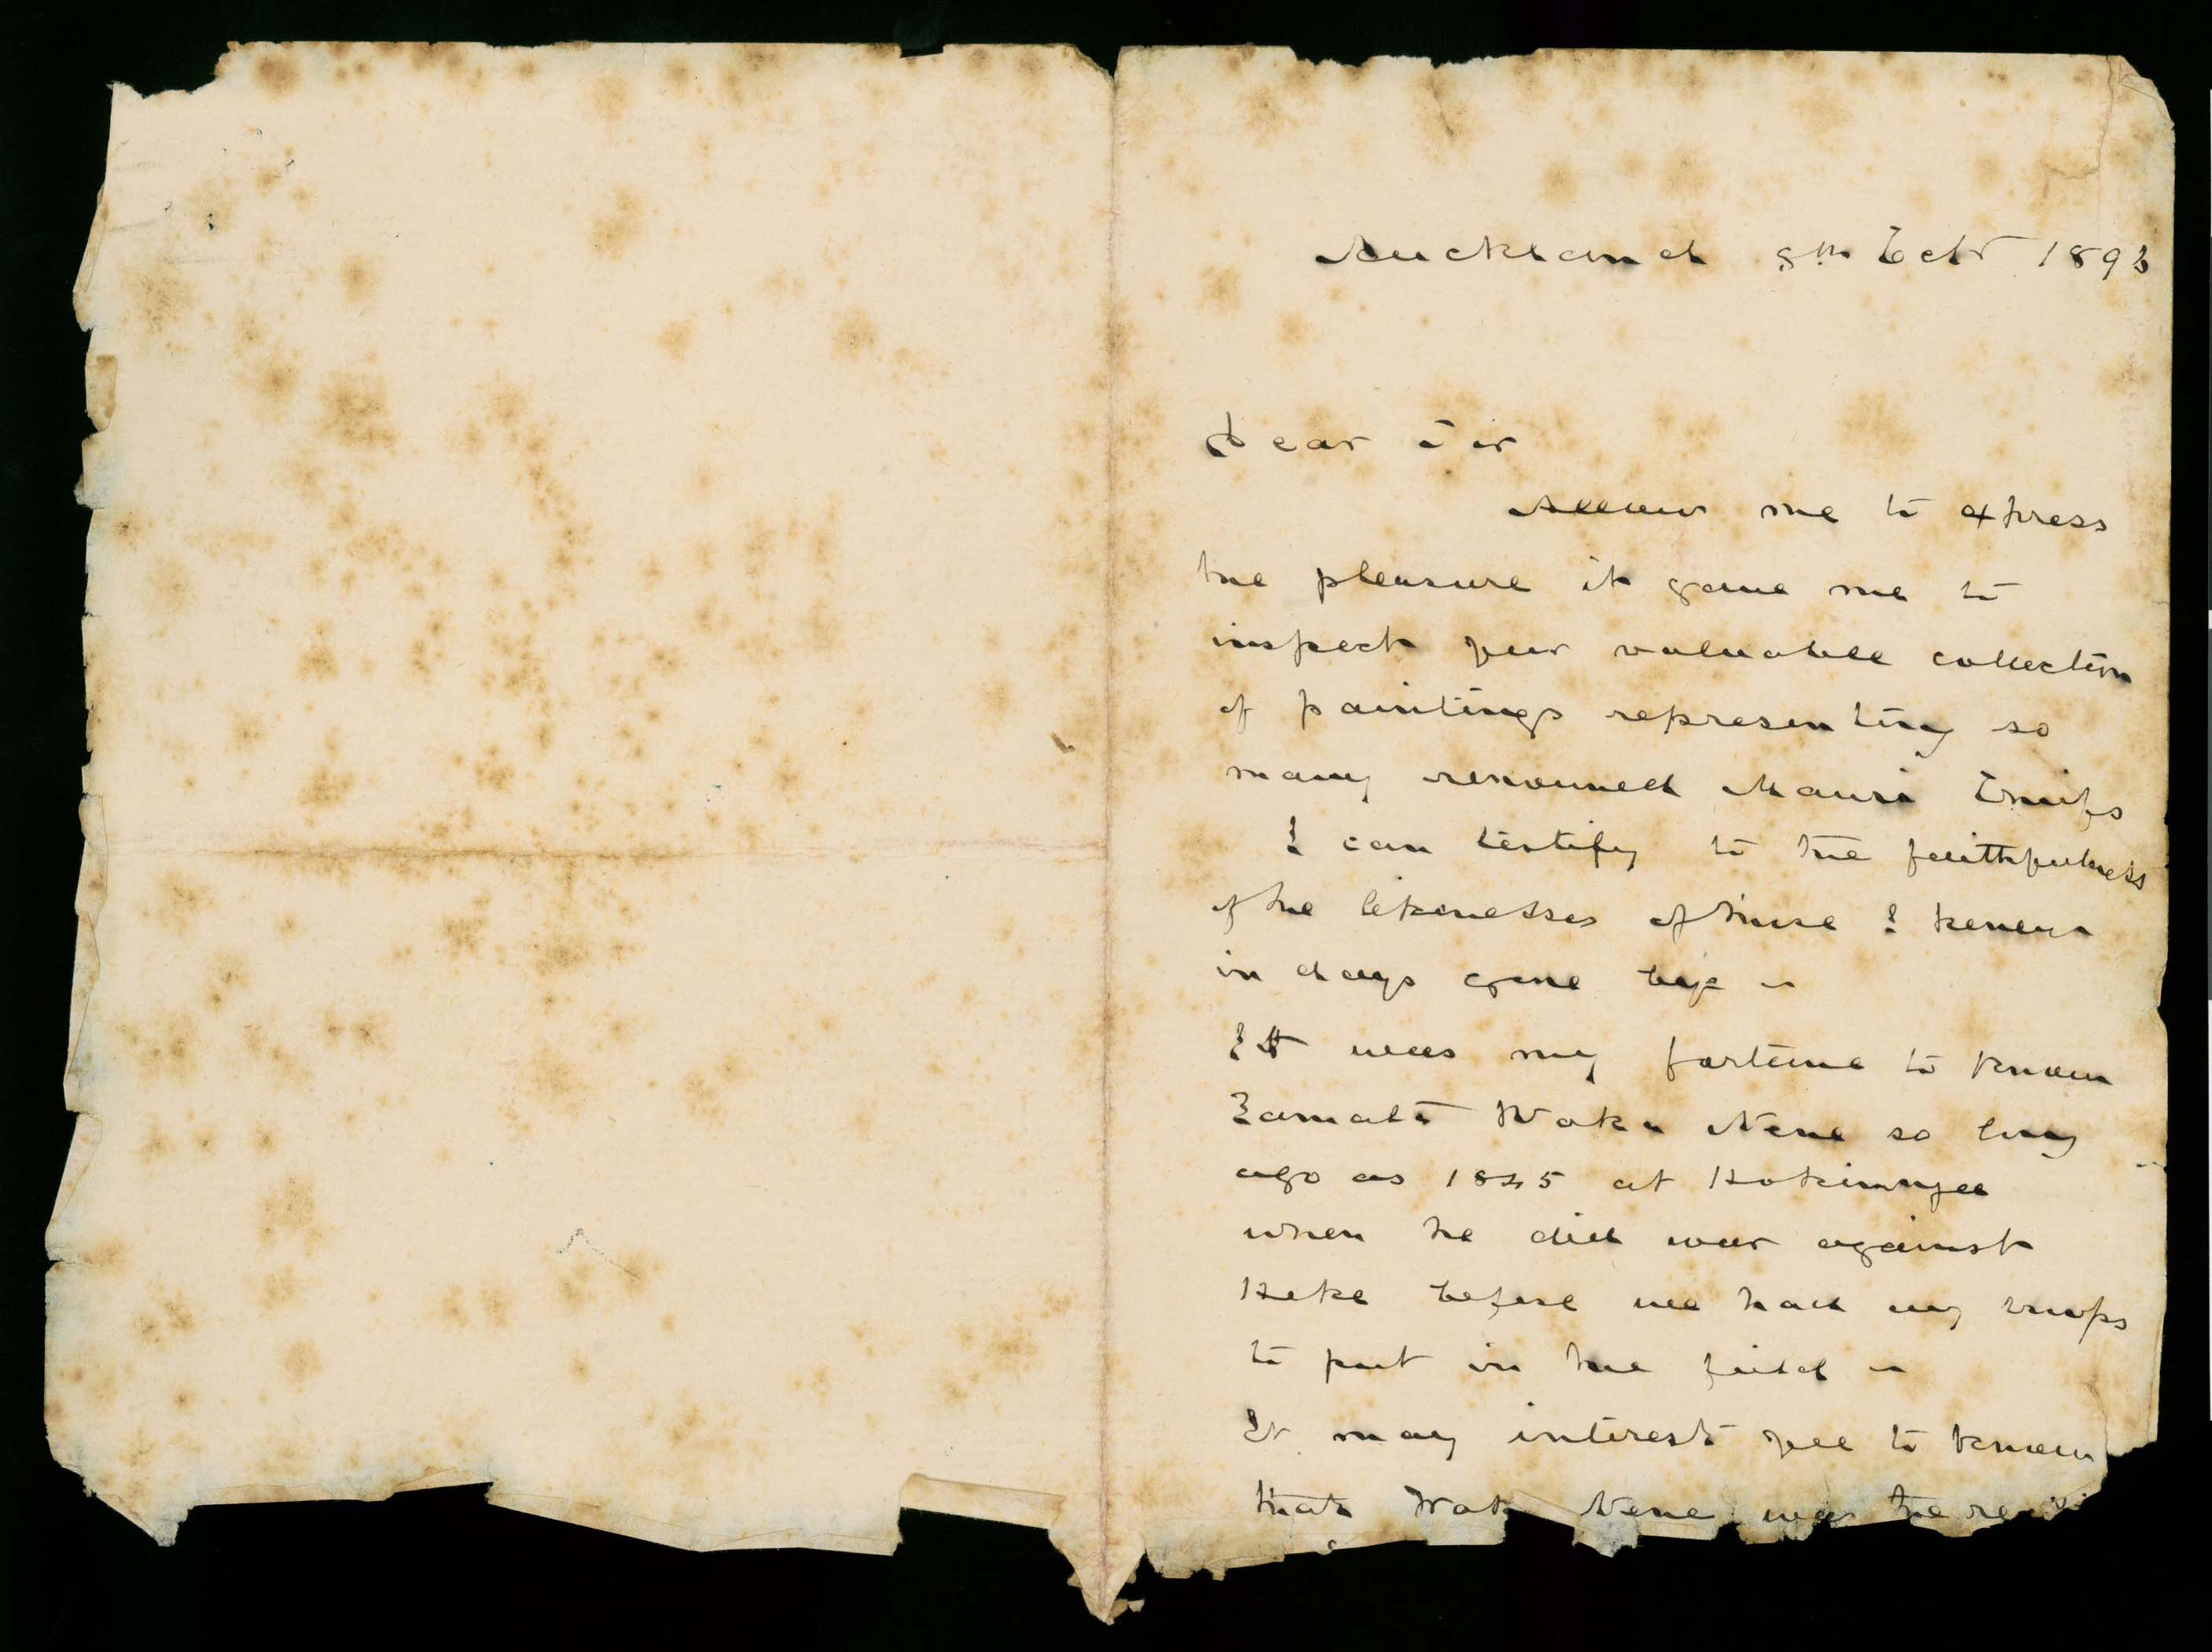 Auckland 8th Octr 1893
Dear Sir
Allow me to express
the pleasure it gave me to
inspect your valuable collection
of paintings representing so
many renowned Maori Chiefs
I can testify to the faithfulness
of the likenesses of those I knew
in days gone bye –
It was my fortune to know
Tamati Waka Nene so long
ago as 1845 at Hokianga
when he did war against
Heke before we had any troops
to put in the feild –
It may interest you to know
that Waka Nene was the